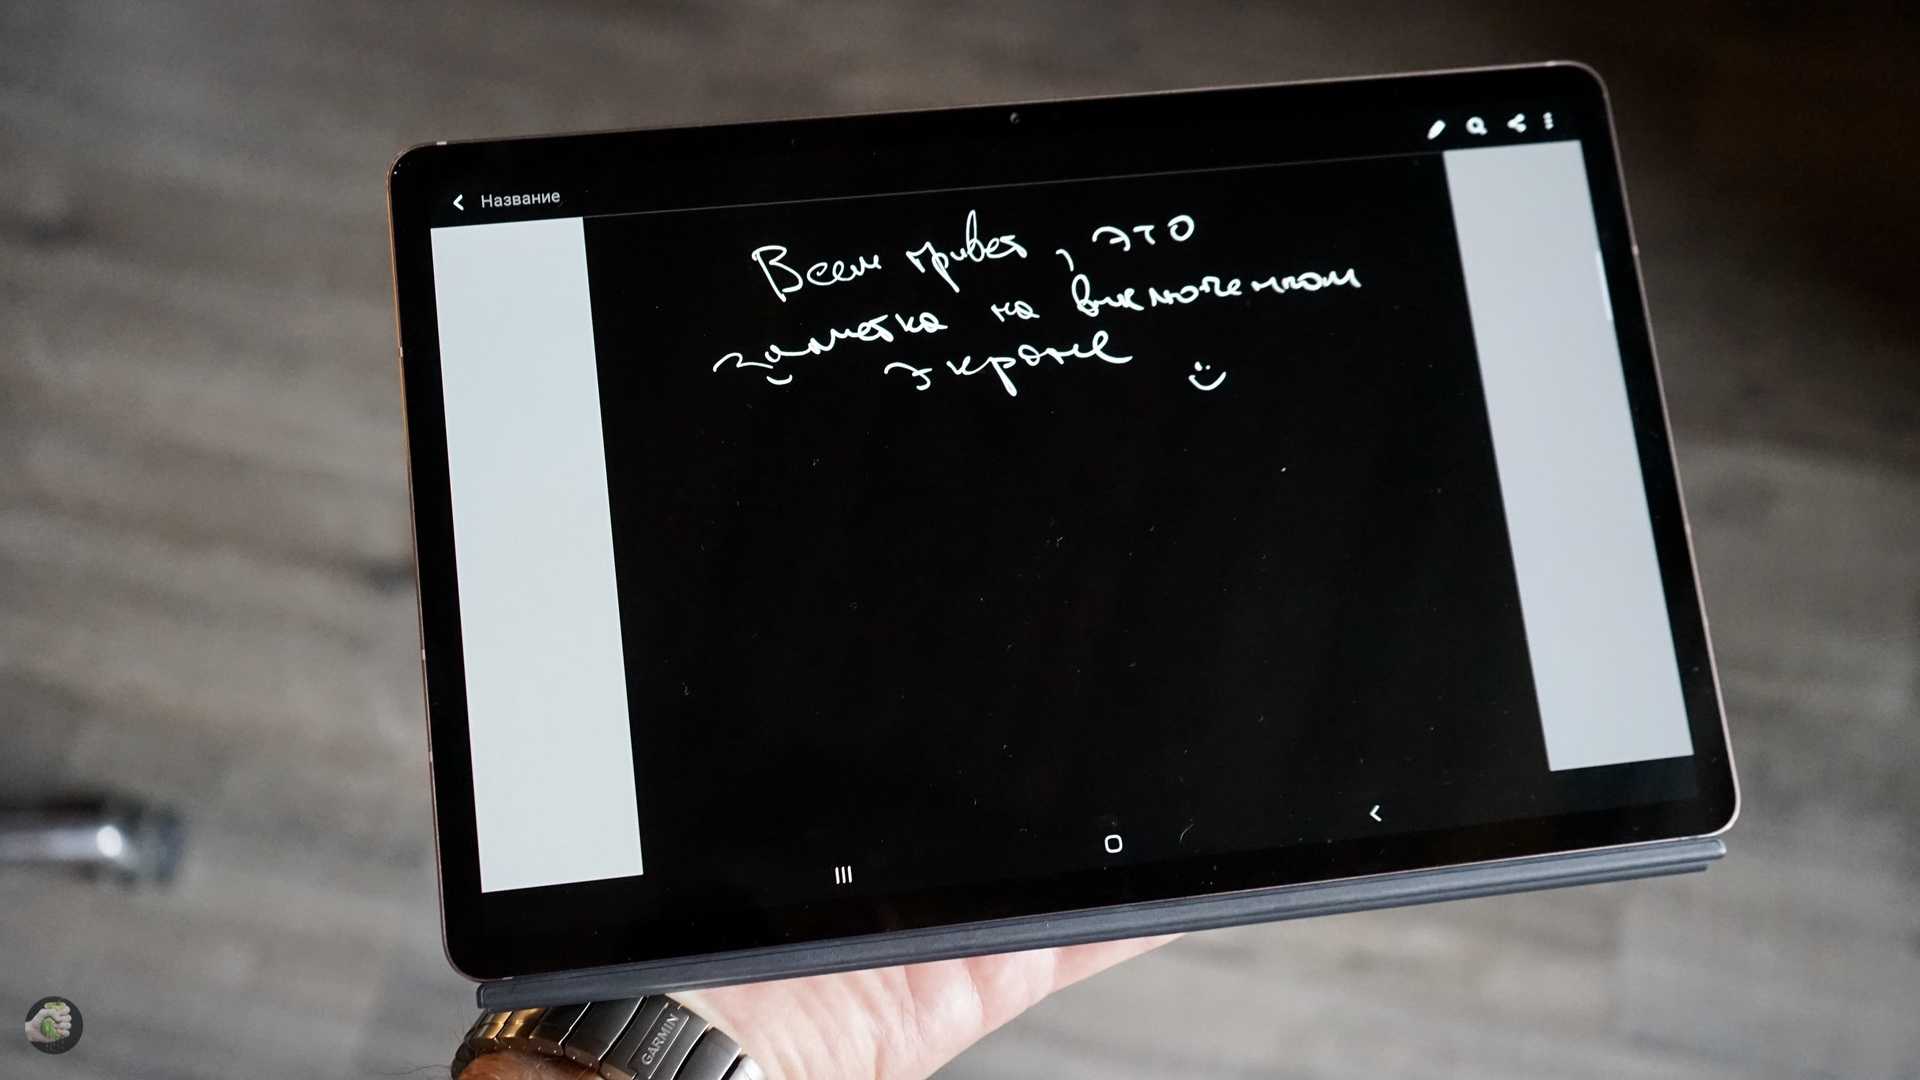 Название
Всем привет, это
заметка на выключенном
экране :)
GARMIN